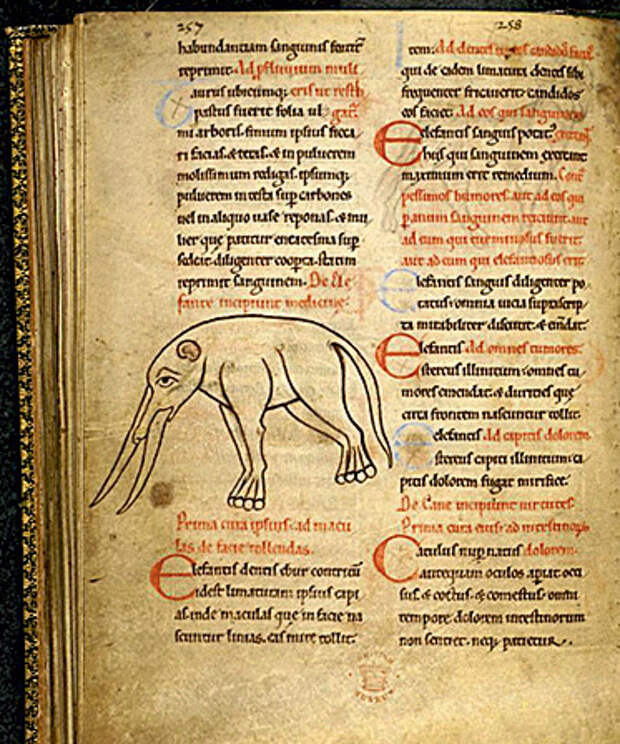 257
habundantiam sanguinis fouerit
reprimit. Ad profluuium muli
Taurus ubicumq; erit ut rest
pastus fuerit folia ul gar.
mi arboris. fimum ipsius sicca
ri facias. & teras. & in puluerem
molissimum redigas. ipsumq;
puluerem in testa sup carbones
uel in aliquo uase reponas. & mu
lier que patitur encatesma sup
sedeat diligenter cooperta. statim
reprimit sanguinem. De Ele
fante incipiunt medicine.
Prima cura ipsius. ad macu
las de facie tollendas.
Elefantis dentis ebur contricū
idest limaturam ipsius capi
as. inde maculas que in facie na
scuntur linias. eas mire tollit.
258
tem. Ad dentes candidos
qui de eadem limatura dentes sibi
frequenter fricuerit. candidos
eos faciet. Ad eos qui sanguinem
Elefantis sanguis potat.
his qui sanguinem excreant
maximum erit remedium. Cont
pessimos humores. aut ad eos qui
panum sanguinem reiciunt. aut
ad eum qui
aut ad eum qui elefantiosus erit
Elefantis sanguis diligenter po
tatus. omnia uicia suprascrip
ta mirabiliter discutit. & emdat.
Elefantis Ad omnes tumores.
stercus illinitum. omnes tu
mores emendat. & duricies que
circa frontem nascuntur tollit.
Elefantis Ad capitis dolorem
stercus capiti illinitum. ca
pitis dolorem fugat mirifice.
De Cane incipiunt uirtutes.
Prima cura eius. ad intestinorū
Catulus nup natus dolorem.
antequam oculos apiat. occi
sus. & coctus. & comestus. omni
tempore dolorem intestinorum
non sentiet. neq; patietur.